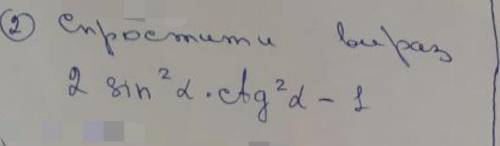 ② Спростити вираз
2 sin²α · ctg²α - 1